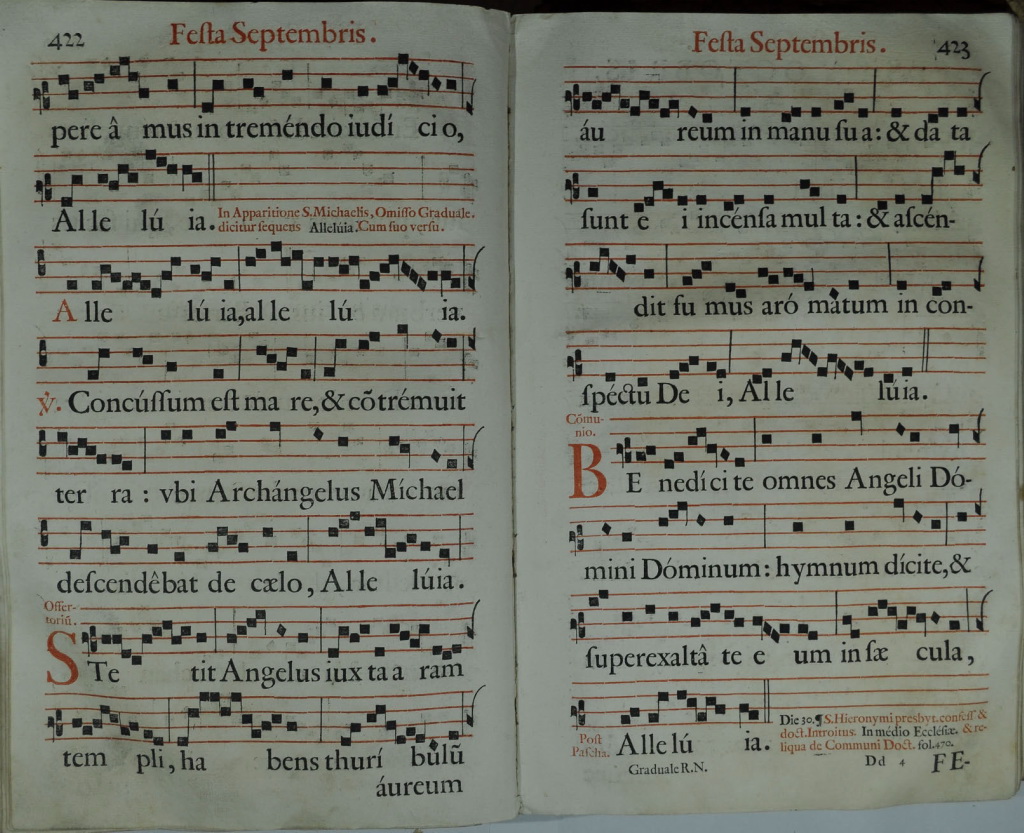 422 Feſta Septembris.
pere â mus in treméndo iudí ci o,
Al le lú ia. In Apparitione S. Michaelis, Omiſſo Graduale.
dicitur ſequens Allelúia. Cum ſuo verſu.
A lle lú ia, al le lú ia.
℣. Concúſſum eſt ma re, & cõtrémuit
ter ra : vbi Archángelus Míchael
deſcendêbat de cælo, Al le lúia.
Offer-
toriũ.
S Te tit Angelus iux ta a ram
tem pli, ha bens thurí bulũ
áureum
Feſta Septembris. 423
áu reum in manu ſu a : & da ta
ſunt e i incénſa mul ta : & aſcén-
dit fu mus aró mátum in con-
ſpéctu De i, Al le lúia.
Cõmu-
nio.
B E nedíci te omnes Angeli Dó-
mini Dóminum : hymnum dícite, &
ſuperexaltâ te e um in ſæ cula,
Poſt
Paſcha.
Alle lú ia.
Die 30. ¶ S. Hieronymi presbyt. confeſſ &
doct. Introitus. In médio Eccléſiæ. & re-
liqua de Communi Doct. fol. 470.
Graduale R.N. Dd 4 FE-